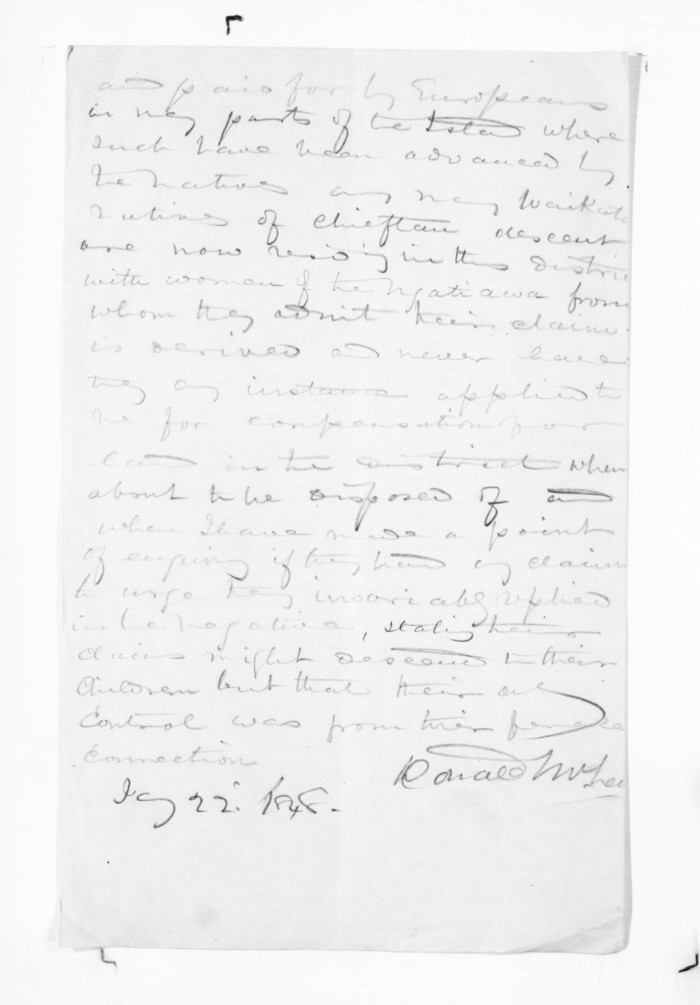 and paid for by Europeans
in many parts of the Island where
such have been advanced by
the Natives any many Waikato
natives of chieftan descent
are now residing in this district
with women of the Ngatiawa from
whom they admit their claim
is derived and never have
they any instance applied to
me for compensation for
land in the district when
about to be disposed of and
when I have made a point
of enquiring if they had any claim
to urge they invariably replied
in the negative, stating their
claims might descend to their
Children but that their only
Control was from their female
connection
Donald McLean
Jany 22d. 1848.